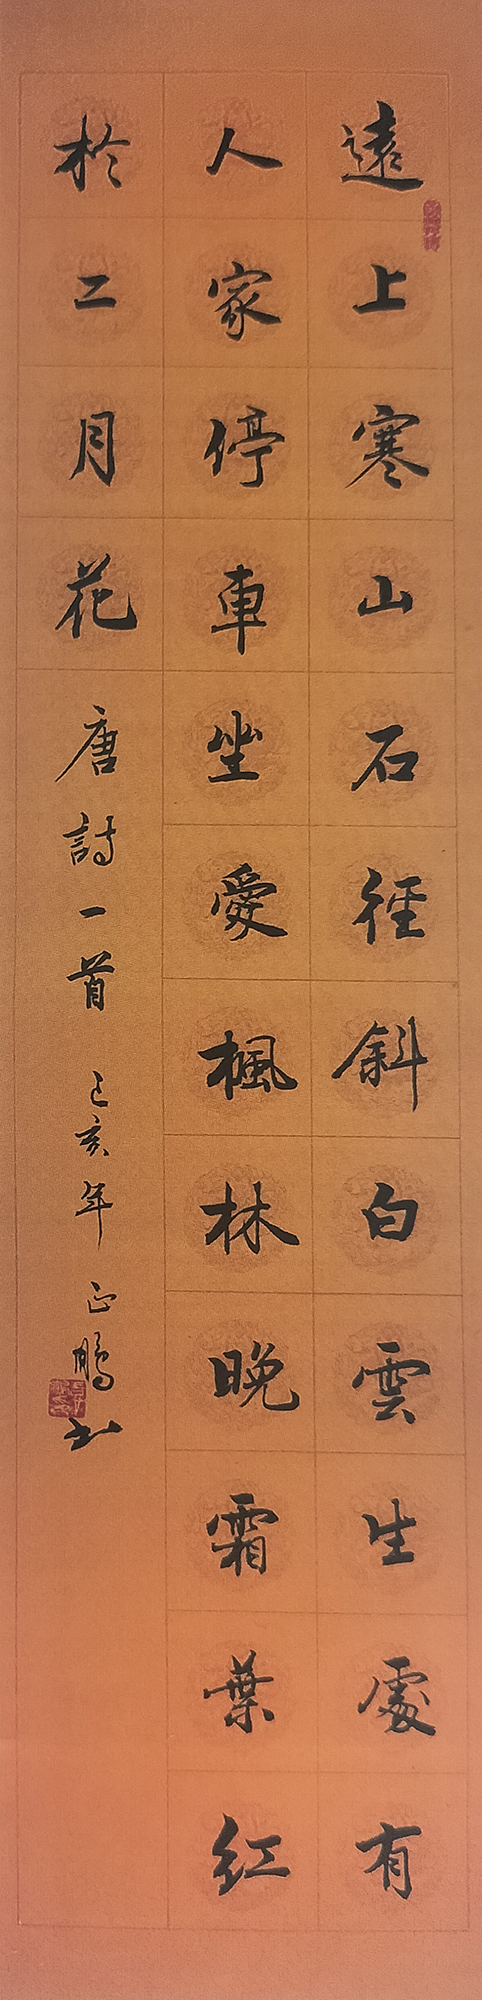 遠上寒山石徑斜白雲生處有
人家停車坐愛楓林晚霜葉紅
於二月花唐詩一首己亥年正鵬书